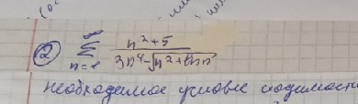 ② ∑ n=1 ∞ (n²+5)/(3n⁴-√(n²+ln n))
необходимое условие сходимости